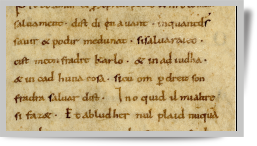 saluament. dist di en auant. inquantds
sauir & podir medunat. sisaluaraieo.
cist meon fradre Karlo. & in adiudha.
& in cad huna cosa. sicu om p dreit son
fradra saluar dift. Ino quid il mialtre
si faz&. Et abludher nul plaid nuquã